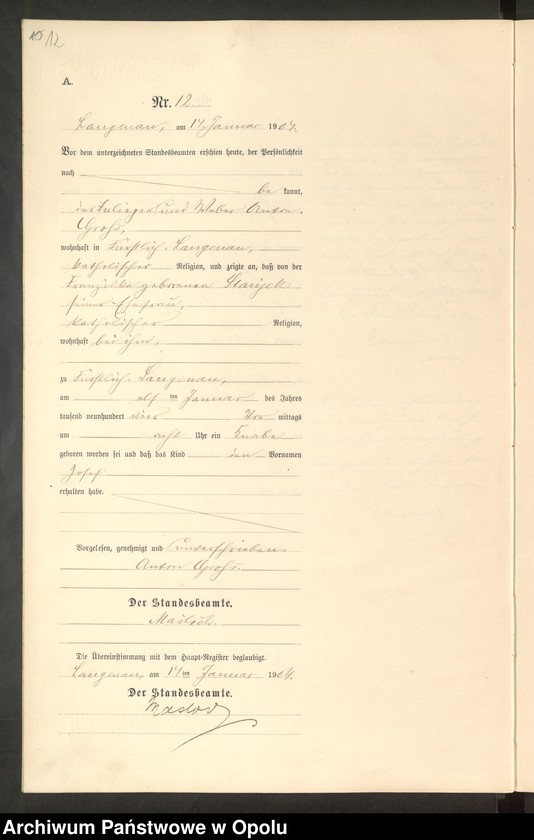 12
A.
Nr. 12.
Langenau, am 14. Januar 1904.
Vor dem unterzeichneten Standesbeamten erschien heute, der Persönlichkeit
nach
be kannt,
der und Weber Anton
Grohs,
wohnhaft in Fürstlich-Langenau,
katholischer Religion, und zeigte an, daß von der
Franziska geborenen
seiner Ehefrau,
katholischer Religion,
wohnhaft bei ihm,
zu Fürstlich-Langenau,
am elf ten Januar des Jahres
tausend neunhundert vier Vor mittags
um acht Uhr ein Knabe
geboren worden sei und daß das Kind den Vornamen
Josef
erhalten habe.
Vorgelesen, genehmigt und unterschrieben.
Anton Grohs.
Der Standesbeamte.
Die Übereinstimmung mit dem Haupt-Register beglaubigt.
Langenau, am 14 ten Januar 1904.
Der Standesbeamte.
Archiwum Państwowe w Opolu